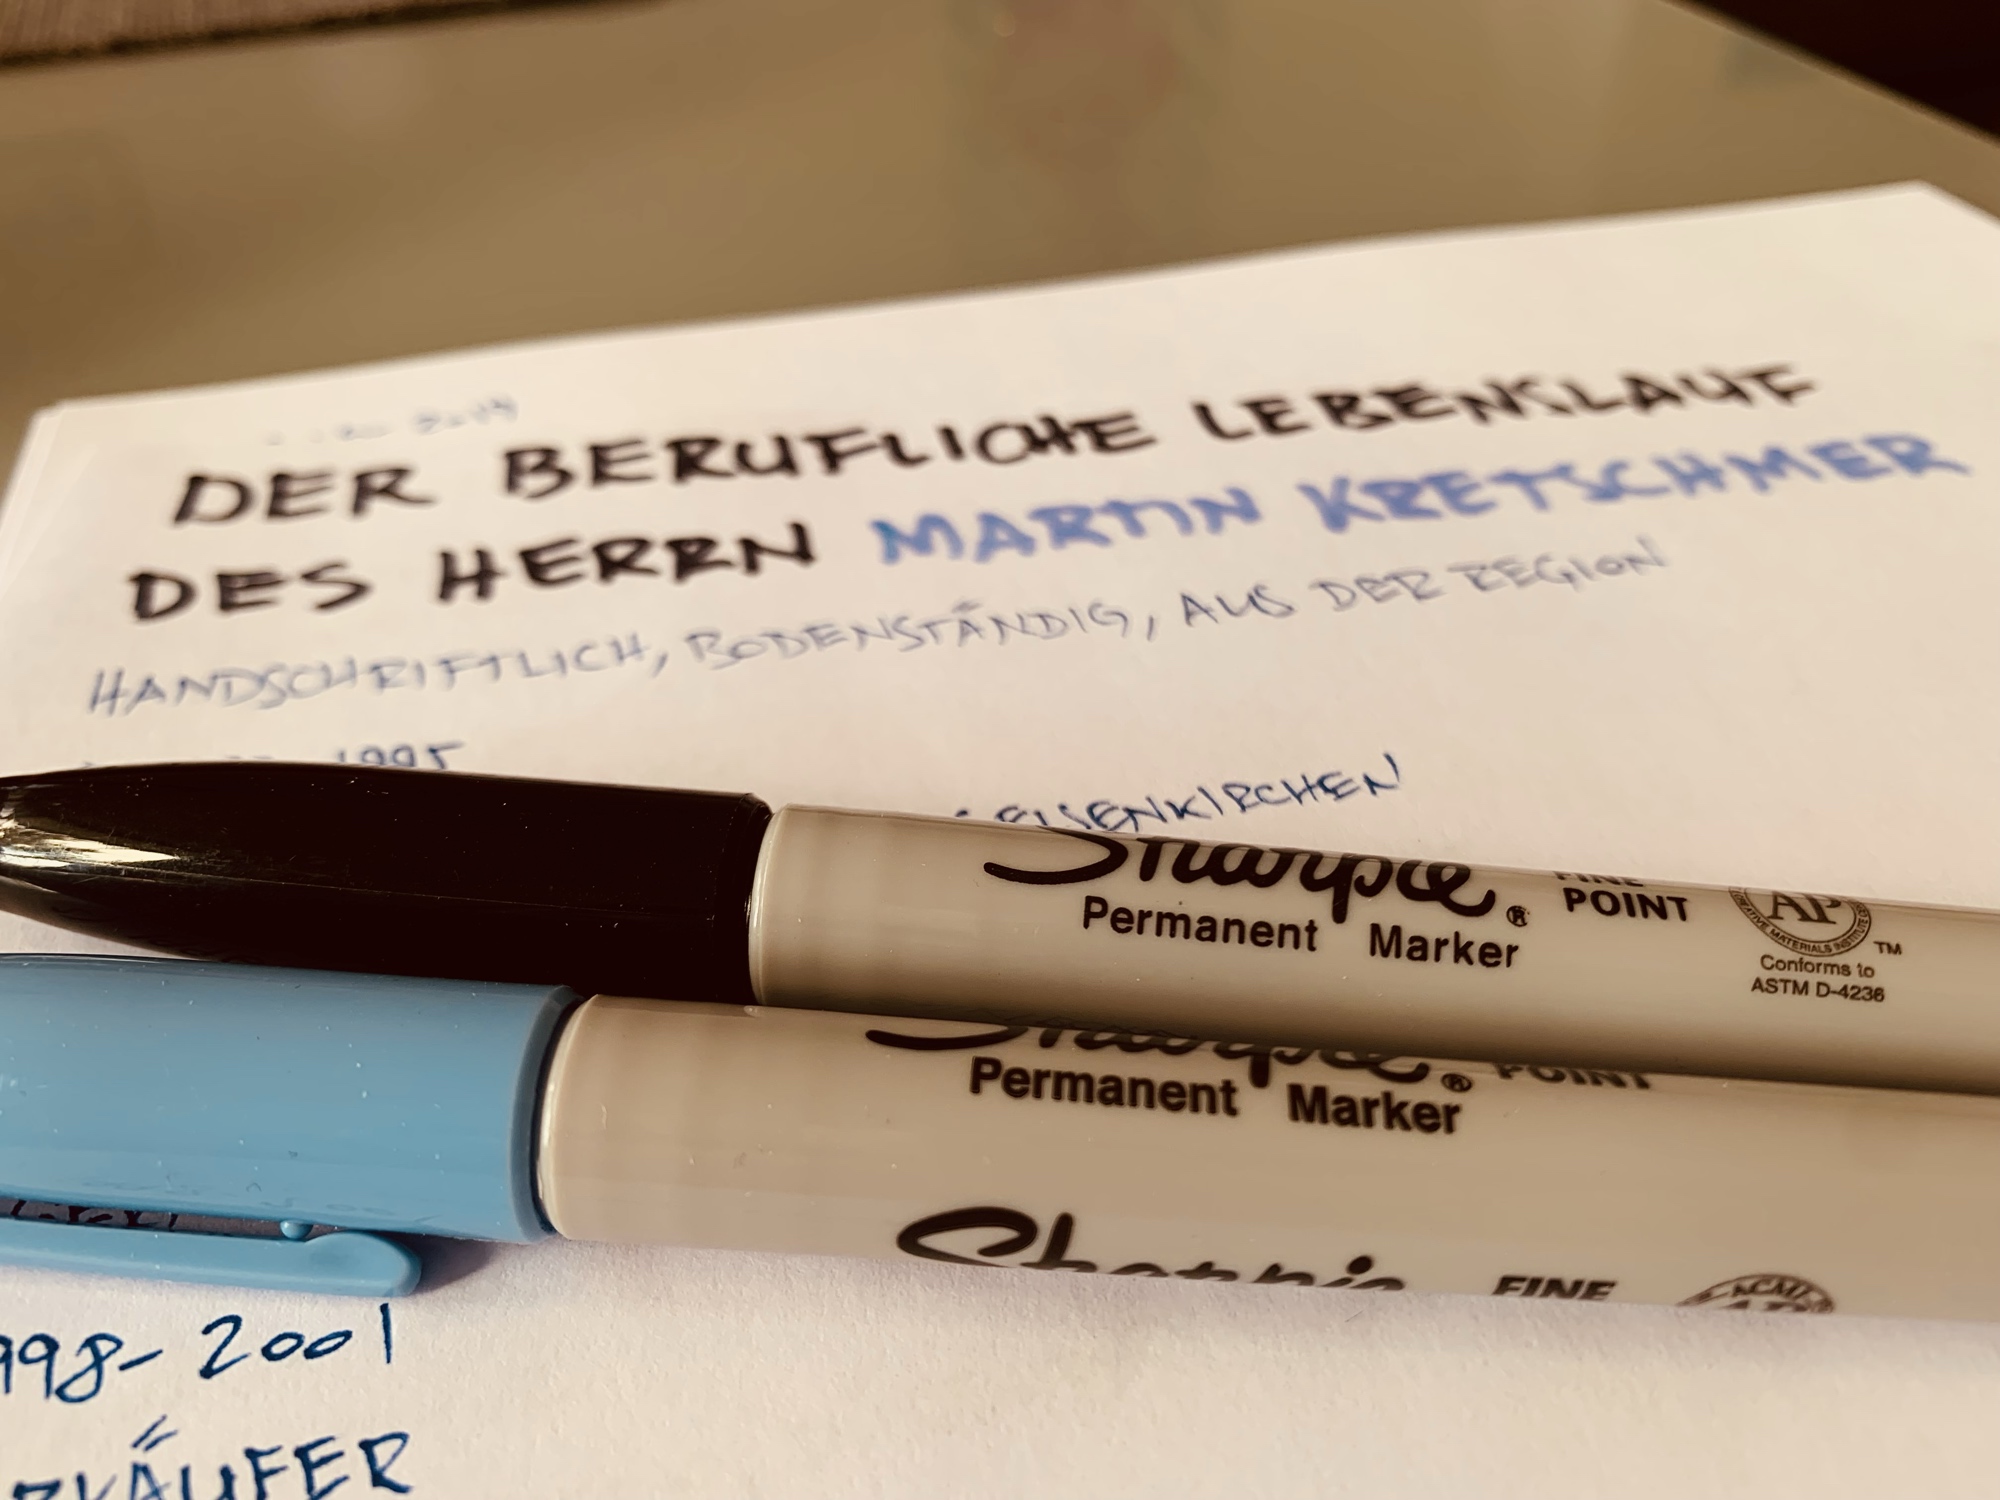 DER BERUFLICHE LEBENSLAUF
DES HERRN MARTIN KRETSCHMER
HANDSCHRIFTLICH, BODENSTÄNDIG, AUS DER REGION
1995
GELSENKIRCHEN
Sharpie®
FINE
POINT
Permanent Marker
AP
CREATIVE MATERIALS INSTITUTE
TM
Conforms to
ASTM D-4236
Sharpie®
POINT
Permanent Marker
Sharpie
FINE
ACMI
1998-2001
VERKÄUFER